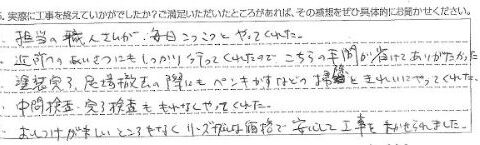 5. 実際に工事を終えていかがでしたか?ご満足いただいたところがあれば、その感想をぜひ具体的にお聞かせください。
・担当の職人さんが、毎日コツコツとやってくれた。
・近所へのあいさつにもしっかり行ってくれたのでこちらの手間が省けてありがたかった
・塗装完了、足場撤去の際にもペンキかすなどの掃除ときれいにやってくれた。
・中間検査・完了検査もそれなくやってくれた。
・おしつけがましいところもなくリーズナブルな価格で安心して工事をまかせられました。